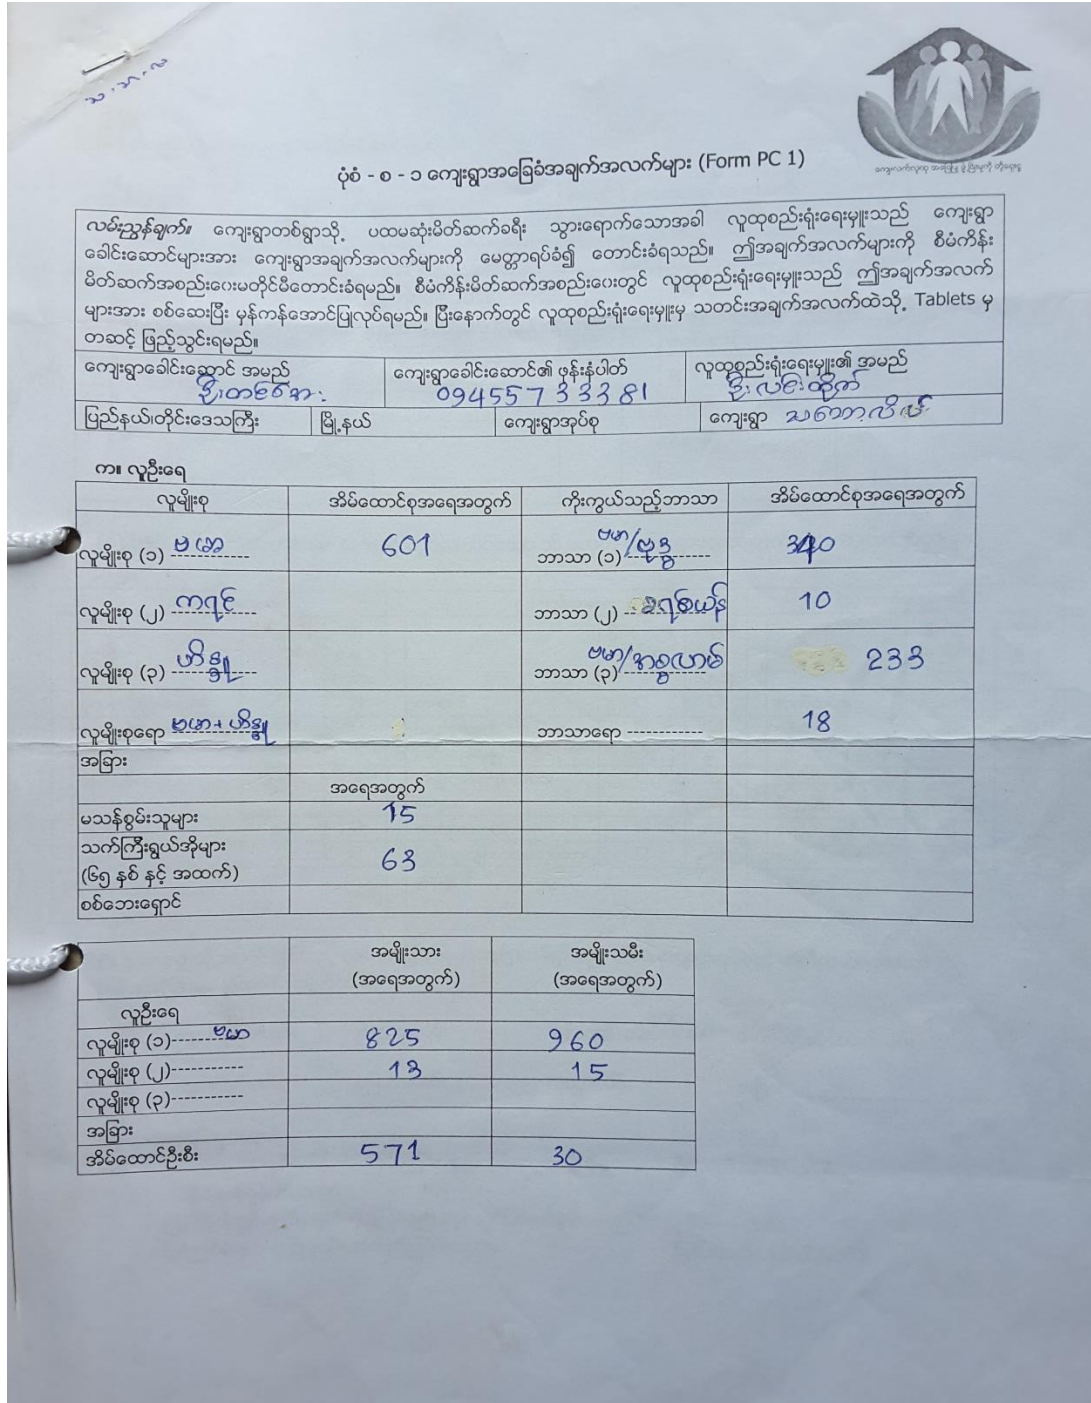 သ.ဘ.လ
ကျေးလက်လူထု အခြေပြု ဖွံ့ဖြိုးမှုကို တို့ရှေးရှု
ပုံစံ - စ - ၁ ကျေးရွာအခြေခံအချက်အလက်များ (Form PC 1)
လမ်းညွှန်ချက်။ ကျေးရွာတစ်ရွာသို့ ပထမဆုံးမိတ်ဆက်ခရီး သွားရောက်သောအခါ လူထုစည်းရုံးရေးမှူးသည် ကျေးရွာ
ခေါင်းဆောင်များအား ကျေးရွာအချက်အလက်များကို မေတ္တာရပ်ခံ၍ တောင်းခံရသည်။ ဤအချက်အလက်များကို စီမံကိန်း
မိတ်ဆက်အစည်းဝေးမတိုင်မီတောင်းခံရမည်။ စီမံကိန်းမိတ်ဆက်အစည်းဝေးတွင် လူထုစည်းရုံးရေးမှူးသည် ဤအချက်အလက်
များအား စစ်ဆေးပြီး မှန်ကန်အောင်ပြုလုပ်ရမည်။ ပြီးနောက်တွင် လူထုစည်းရုံးရေးမှူးမှ သတင်းအချက်အလက်ထဲသို့ Tablets မှ
တဆင့် ဖြည့်သွင်းရမည်။
ကျေးရွာခေါင်းဆောင် အမည် ကျေးရွာခေါင်းဆောင်၏ ဖုန်းနံပါတ် လူထုစည်းရုံးရေးမှူး၏ အမည်
ဦးတင်အေး 09455733381 ဦးလင်းထိုက်
ပြည်နယ်၊တိုင်းဒေသကြီး မြို့နယ် ကျေးရွာအုပ်စု ကျေးရွာ
က။ လူဦးရေ
လူမျိုးစု အိမ်ထောင်စုအရေအတွက် ကိုးကွယ်သည့်ဘာသာ အိမ်ထောင်စုအရေအတွက်
လူမျိုးစု (၁) ဗမာ 601 ဘာသာ (၁) ဗမာ/ဗုဒ္ဓ 340
လူမျိုးစု (၂) ကရင် ဘာသာ (၂) ခရစ်ယန် 10
လူမျိုးစု (၃) ဟိန္ဒူ ဘာသာ (၃) ဗမာ/အစ္စလာမ် 233
လူမျိုးစုရော ဗမာ + ဟိန္ဒူ ဘာသာရော ------------ 18
အခြား
အရေအတွက်
မသန်စွမ်းသူများ 15
သက်ကြီးရွယ်အိုများ
(၆၅ နှစ် နှင့် အထက်) 63
စစ်ဘေးရှောင်
အမျိုးသား အမျိုးသမီး
(အရေအတွက်) (အရေအတွက်)
လူဦးရေ
လူမျိုးစု (၁)------- ဗမာ 825 960
လူမျိုးစု (၂)----------- 13 15
လူမျိုးစု (၃)-----------
အခြား
အိမ်ထောင်ဦးစီး 571 30